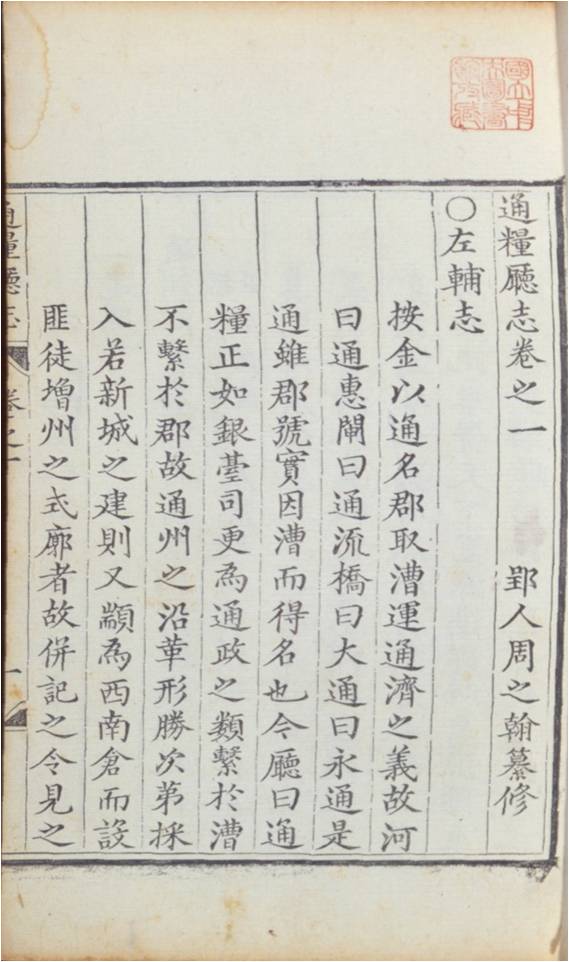 通糧廳志卷之一 郢人周之翰纂修
〇左輔志
按金以通名郡取漕運通濟之義故河
曰通惠閘曰通流橋曰大通曰永通是
通雖郡號實因漕而得名也今廳曰通
糧正如銀臺司更為通政之類繫於漕
不繫於郡故通州之沿革形勝次第採
入若新城之建則又顓為西南倉而設
匪徒增州之式廓者故併記之令見之
通糧廳志 卷之一 一